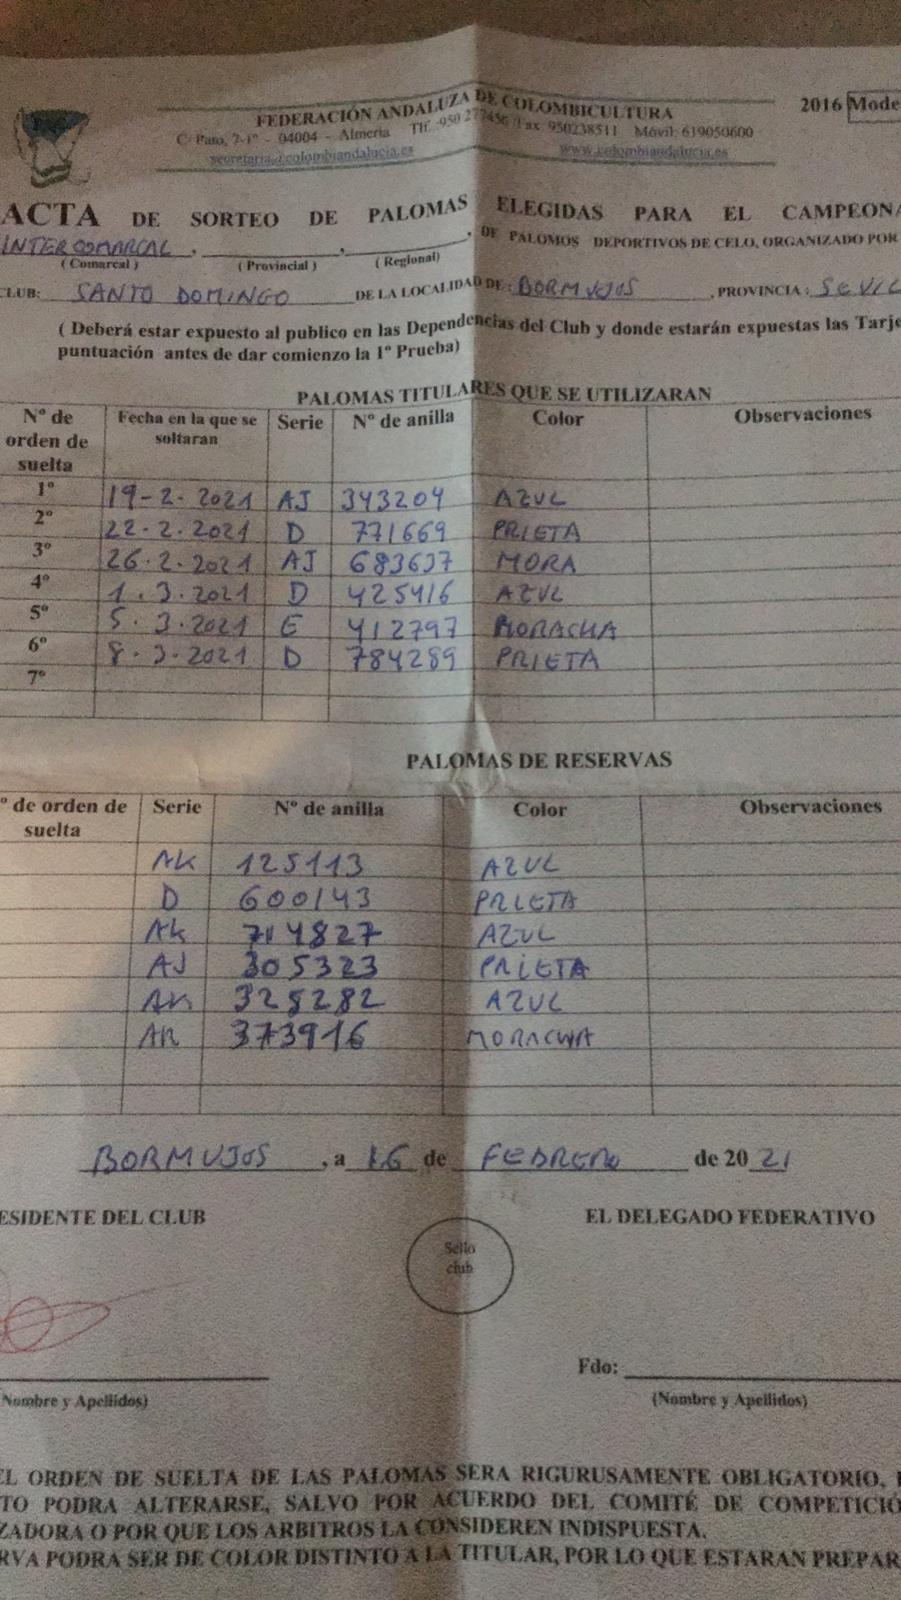 FEDERACIÓN ANDALUZA DE COLOMBICULTURA
2016 Mode
C/ Pato, 7-1º - 04004 - Almería Tlf. 950 277456 /Fax 950238511 Móvil: 619050600
secretaria@colombiandalucia.es www.colombiandalucia.es
ACTA DE SORTEO DE PALOMAS ELEGIDAS PARA EL CAMPEONA
INTERCOMARCAL, , , DE PALOMOS DEPORTIVOS DE CELO, ORGANIZADO POR
( Comarcal ) ( Provincial ) ( Regional)
CLUB: SANTO DOMINGO DE LA LOCALIDAD DE: BORMUJOS , PROVINCIA: SEVIL
( Deberá estar expuesto al publico en las Dependencias del Club y donde estarán expuestas las Tarje
puntuación antes de dar comienzo la 1º Prueba)
PALOMAS TITULARES QUE SE UTILIZARAN
Nº de orden de suelta Fecha en la que se soltaran Serie Nº de anilla Color Observaciones
1º 19-2-2021 AJ 343204 AZUL
2º 22-2-2021 D 771669 PRIETA
3º 26-2-2021 AJ 683637 MORA
4º 1-3-2021 D 425416 AZUL
5º 5-3-2021 E 412797 MORACHA
6º 8-3-2021 D 784289 PRIETA
7º
PALOMAS DE RESERVAS
º de orden de suelta Serie Nº de anilla Color Observaciones
AK 125113 AZUL
D 600143 PRIETA
AK 714827 AZUL
AJ 305323 PRIETA
325282 AZUL
373916 MORACHA
BORMUJOS , a 16 de FEBRERO de 2021
ESIDENTE DEL CLUB EL DELEGADO FEDERATIVO
Sello
club
Fdo:
(Nombre y Apellidos) (Nombre y Apellidos)
EL ORDEN DE SUELTA DE LAS PALOMAS SERA RIGURUSAMENTE OBLIGATORIO,
TO PODRA ALTERARSE, SALVO POR ACUERDO DEL COMITÉ DE COMPETICIÓ
ZADORA O POR QUE LOS ARBITROS LA CONSIDEREN INDISPUESTA.
RVA PODRA SER DE COLOR DISTINTO A LA TITULAR, POR LO QUE ESTARAN PREPAR